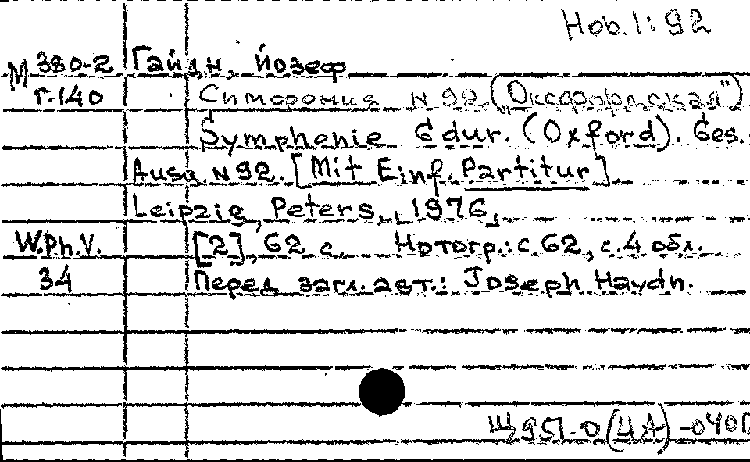 Ноб.1:92
М 380-2 Гайдн, Йозеф
Г-140 Симфония N 92 ("Оксфордская")
Symphonie G dur. (Oxford). Ges.
Ausg. N 92. [Mit Einf. Partitur]
Leipzig, Peters, 1976,
W.Ph.V. [2], 62 с. Нотогр.: с.62, с.4 обл.
34 Перед загл. авт.: Joseph Haydn.
Щ951-0(4А)-040